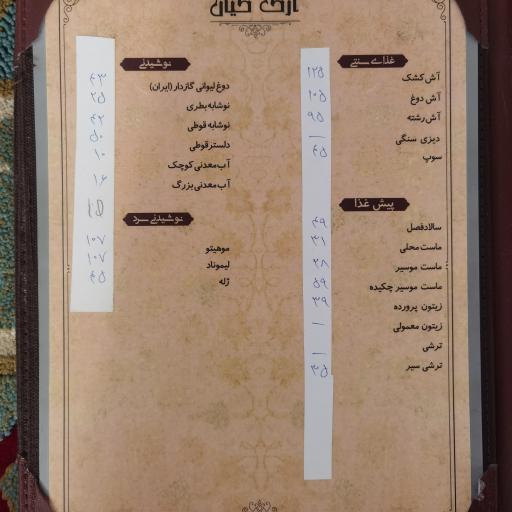 ارک کیان
غذای سنتی
آش کشک ۱۲۵
آش دوغ ۱۰۵
آش رشته ۹۵
دیزی سنگی —
سوپ ۴۵
پیش غذا
سالاد فصل ۴۹
ماست محلی ۳۱
ماست موسیر ۳۸
ماست موسیر چکیده ۵۹
زیتون پرورده ۳۹
زیتون معمولی —
ترشی —
ترشی سیر ۳۵
نوشیدنی
دوغ لیوانی گازدار (ایران) ۴۳
نوشابه بطری ۲۵
نوشابه قوطی ۴۲
دلستر قوطی ۵۰
آب معدنی کوچک ۱۰
آب معدنی بزرگ ۱۶
۱۵
نوشیدنی سرد
موهیتو ۱۰۷
لیموناد ۱۰۷
ژله ۴۵